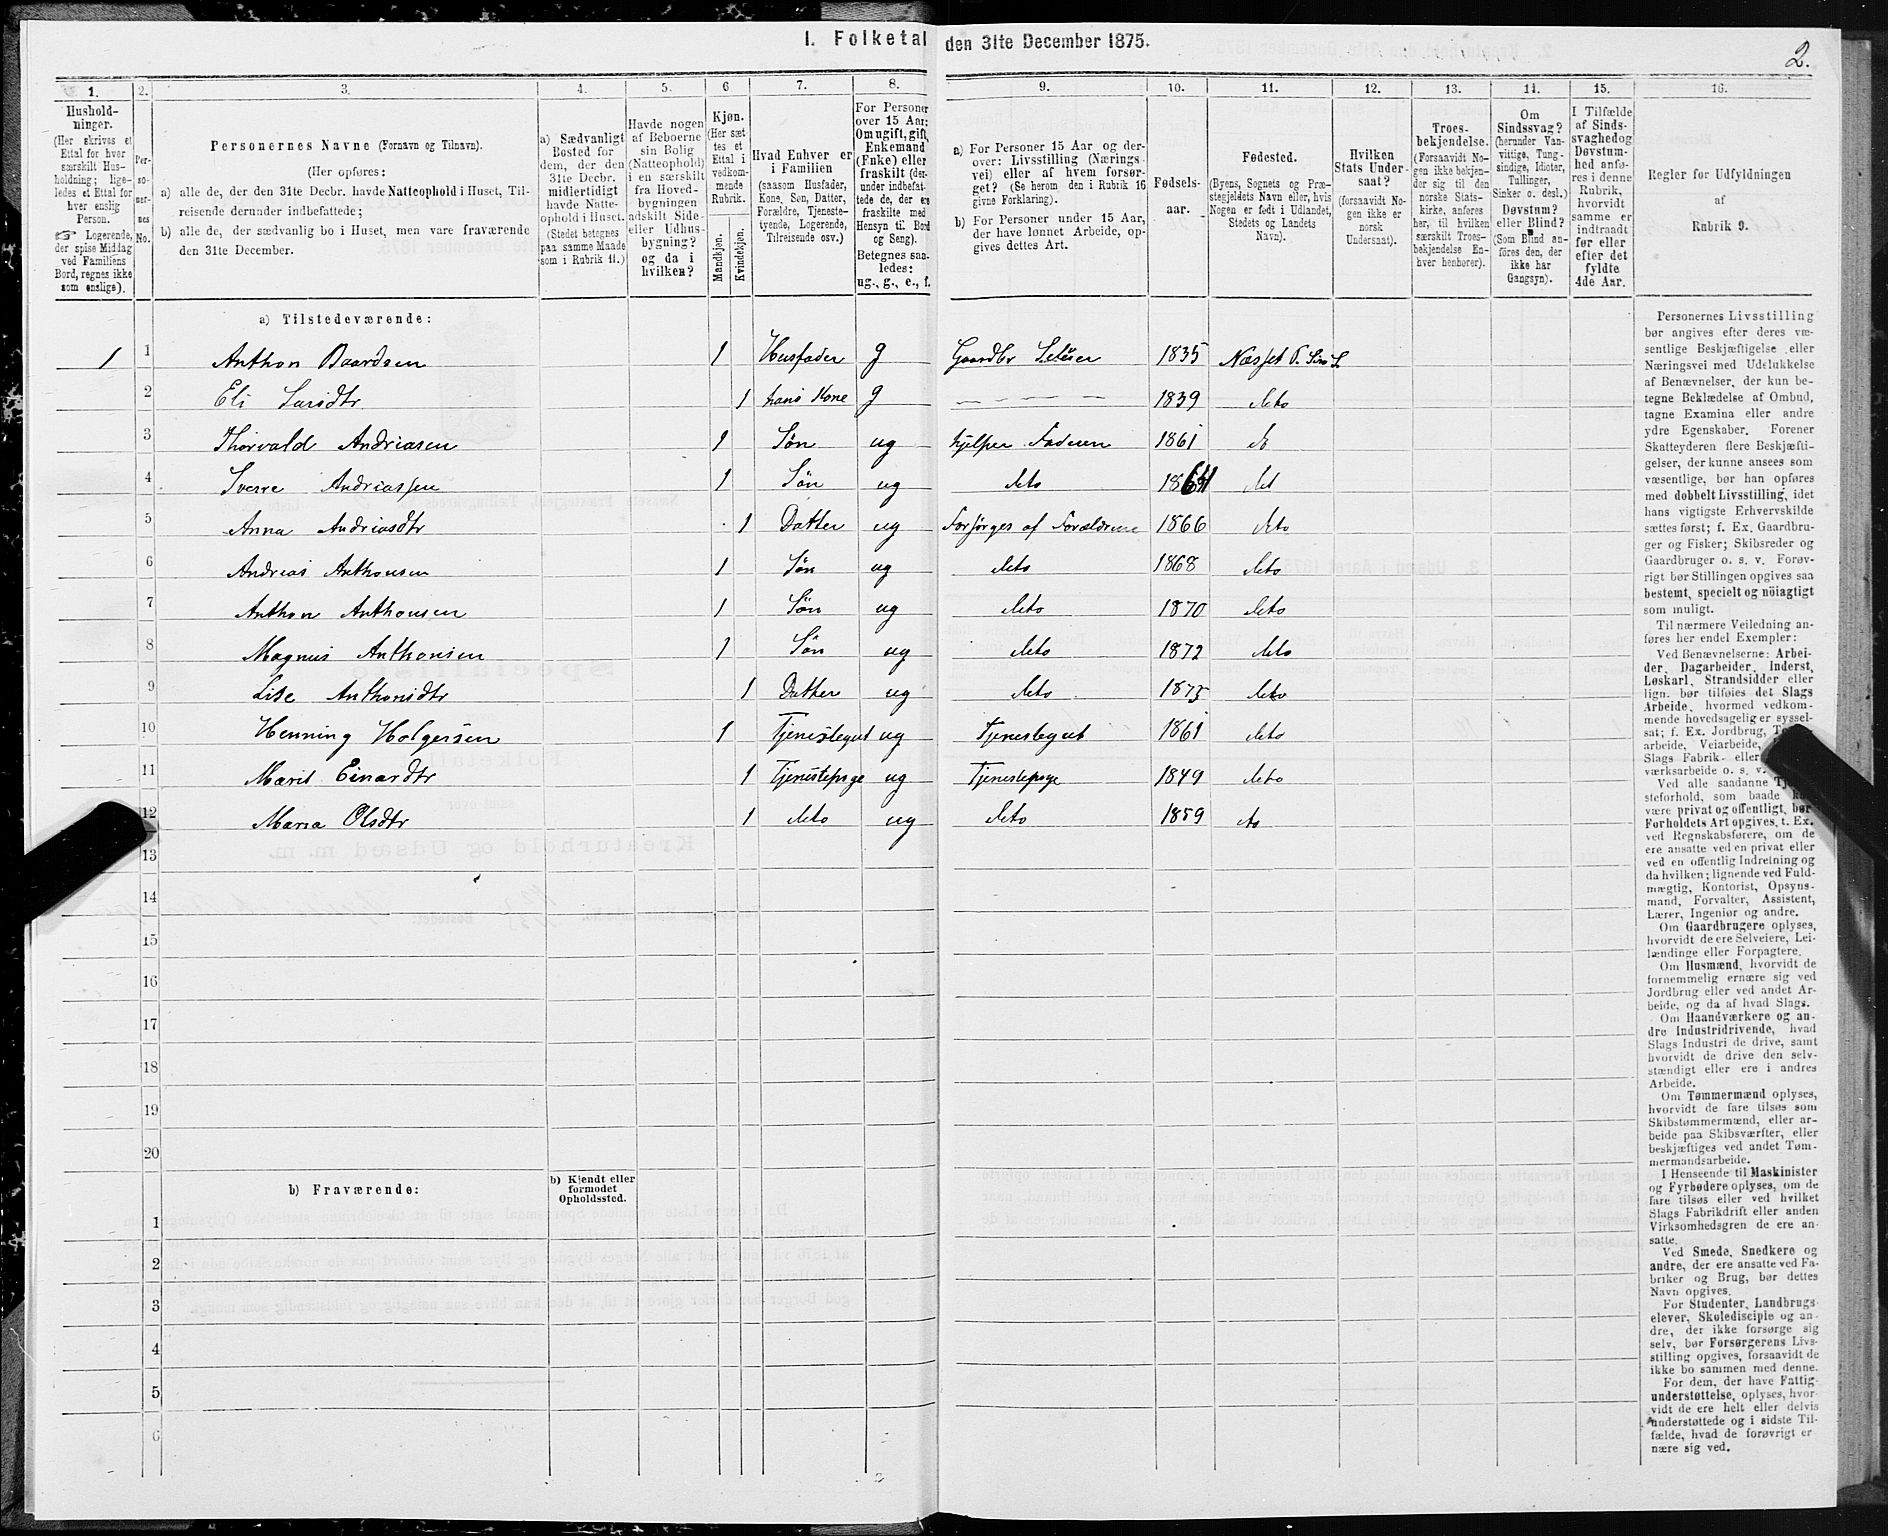 I. Folketal den 31te December 1875.
2.
1. 2. 3. 4. 5. 6. 7. 8. 9. 10. 11. 12. 13. 14. 15. 16.
Hushold-
ninger.
(Her skrives et
Ettal for hver
særskilt Hus-
holdning; lige-
ledes et Ettal for
hver enslig
Person.
☞ Logerende,
der spise Middag
ved Familiens
Bord, regnes ikke
som enslige).
Per-
so-
ner-
nes
No.
Personernes Navne (Fornavn og Tilnavn).
(Her opføres:
a) alle de, der den 31te Decbr. havde Natteophold i Huset, Til-
reisende derunder indbefattede;
b) alle de, der sædvanlig bo i Huset, men vare fraværende
den 31te December.
a) Sædvanligt
Bosted for
dem, der den
31te Decbr.
midlertidigt
havde Natte-
ophold i Huset.
(Stedet betegnes
paa samme Maade
som i Rubrik 11.)
Havde nogen
af Beboerne
sin Bolig
(Natteophold)
i en særskilt
fra Hoved-
bygningen
adskilt Side-
eller Udhus-
bygning?
og da i
hvilken?
Kjøn.
(Her sæt
tes et
Ettal i
vedkom-
mende
Rubrik.
Mandkjøn.
Kvindekjøn.
Hvad Enhver er
i Familien
(saasom Husfader,
Kone, Søn, Datter,
Forældre, Tjeneste-
tyende, Logerende,
Tilreisende osv.)
For Personer
over 15 Aar:
Om ugift, gift,
Enkemand
(Enke) eller
fraskilt (der-
under indbefat-
tede de, der ere
fraskilte med
Hensyn til Bord
og Seng).
Betegnes saa-
ledes:
ug., g., e., f.
a) For Personer 15 Aar og der-
over: Livsstilling (Nærings-
vei) eller af hvem forsør-
get? (Se herom den i Rubrik 16
givne Forklaring).
b) For Personer under 15 Aar,
der have lønnet Arbeide, op-
gives dettes Art.
Fødsels-
aar.
Fødested.
(Byens, Sognets og Præ-
stegjeldets Navn eller, hvis
Nogen er født i Udlandet,
Stedets og Landets
Navn).
Hvilken
Stats Under-
saat?
(forsaavidt No-
gen ikke er
norsk
Undersaat).
Troes-
bekjendelse.
(Forsaavidt No-
gen ikke bekjen-
der sig til den
norske Stats-
kirke, anføres
her, til hvilken
særskilt Troes-
bekjendelse En-
hver henhører).
Om
Sindssvag?
(herunder Van-
vittige, Tung-
sindige, Idioter,
Tullinger,
Sinker o. desl.)
Døvstum?
eller Blind?
(Som Blind an-
føres den, der
ikke har
Gangsyn).
I Tilfælde
af Sinds-
svaghed og
Døvstum-
hed anfø-
res i denne
Rubrik,
hvorvidt
samme er
indtraadt
før eller
efter det
fyldte
4de Aar.
Regler for Udfyldningen
af
Rubrik 9.
a) Tilstedeværende:
1 1 Anthon Baardsen 1 Husfader g Gaardbr Seleier 1835 Næsset P.
2 Eli Larsdtr 1 hans Kone g — — — — 1839 deto
3 Thorvald Andriasen 1 Søn ug hjelper Faderen 1861 d
4 Sverre Andriassen 1 Søn ug deto 1864 det
5 Anna Andriasdtr 1 Datter ug Forsørges af Forældrene 1866 deto
6 Andrias Anthonsen 1 Søn ug deto 1868 deto
7 Anthon Anthonsen 1 Søn ug deto 1870 deto
8 Magnus Anthonsen 1 Søn ug deto 1872 deto
9 Lise Anthonsdtr 1 Datter ug deto 1875 deto
10 Henning Holgersen 1 Tjenestegut ug Tjenestegut 1861 deto
11 Marit Einardtr 1 Tjenestepige ug Tjenestepige 1849 deto
12 Maria Olsdtr 1 deto ug deto 1859 do
13
14
15
16
17
18
19
20
b) Fraværende:
b) Kjendt eller
formodet
Opholdssted.
1
2
3
4
5
6
Personernes Livsstilling
bør angives efter deres væ-
sentlige Beskjæftigelse eller
Næringsvei med Udelukkelse
af Benævnelser, der kun be-
tegne Beklædelse af Ombud,
tagne Examina eller andre
ydre Egenskaber. Forener
Skatteyderen flere Beskjæfti-
gelser, der kunne ansees som
væsentlige, bør han opføres
med dobbelt Livsstilling, idet
hans vigtigste Erhvervskilde
sættes først; f. Ex. Gaardbru-
ger og Fisker; Skibsreder og
Gaardbruger o. s. v. Forøv-
rigt bør Stillingen opgives saa
bestemt, specielt og nöiagtigt
som muligt.
Til nærmere Veiledning an-
føres her endel Exempler:
Ved Benævnelserne: Arbei-
der, Dagarbeider, Inderst,
Løskarl, Strandsidder eller
lign. bør tilføies det Slags
Arbeide, hvormed vedkom-
mende hovedsagelig er syssel-
sat; f. Ex. Jordbrug,
arbeide, Veiarbeide,
Slags Fabrik- eller
værksarbeide o. s. v.
Ved alle saadanne Tje-
steforhold, som baade kan
være privat og offentligt, bør
Forholdets Art opgives, t. Ex.
ved Regnskabsførere, om de
ere ansatte ved en privat eller
ved en offentlig Indretning og
da hvilken; lignende ved Fuld-
mægtig, Kontorist, Opsyns-
mand, Forvalter, Assistent,
Lærer, Ingeniør og andre.
Om Gaardbrugere oplyses,
hvorvidt de ere Selveiere, Lei-
lændinge eller Forpagtere.
Om Husmænd, hvorvidt de
fornemmelig ernære sig ved
Jordbrug eller ved andet Ar-
beide, og da af hvad Slags.
Om Haandværkere og an-
dre Industridrivende, hvad
Slags Industri de drive, samt
hvorvidt de drive den selv-
stændigt eller ere i andres
Arbeide.
Om Tømmermænd oplyses,
hvorvidt de fare tilsøs som
Skibstømmermænd, eller ar-
beide paa Skibsværfter, eller
beskjæftiges ved andet Tøm-
mermandsarbeide.
I Henseende til Maskinister
og Fyrbødere oplyses, om de
fare tilsøs eller ved hvilket
Slags Fabrikdrift eller anden
Virksomhedsgren de ere an-
satte.
Ved Smede, Snedkere og
andre, der ere ansatte ved Fa-
briker og Brug, bør dettes
Navn opgives.
For Studenter, Landbrugs-
elever, Skoledisciple og an-
dre, der ikke forsørge sig
selv, bør Forsørgerens Livs-
stilling opgives, forsaavidt de
ikke bo sammen med denne.
For dem, der have Fattig-
understøttelse, oplyses, hvor-
vidt de ere helt eller delvis
understøttede og i sidste Til-
fælde, hvad de forøvrigt er-
nære sig ved.